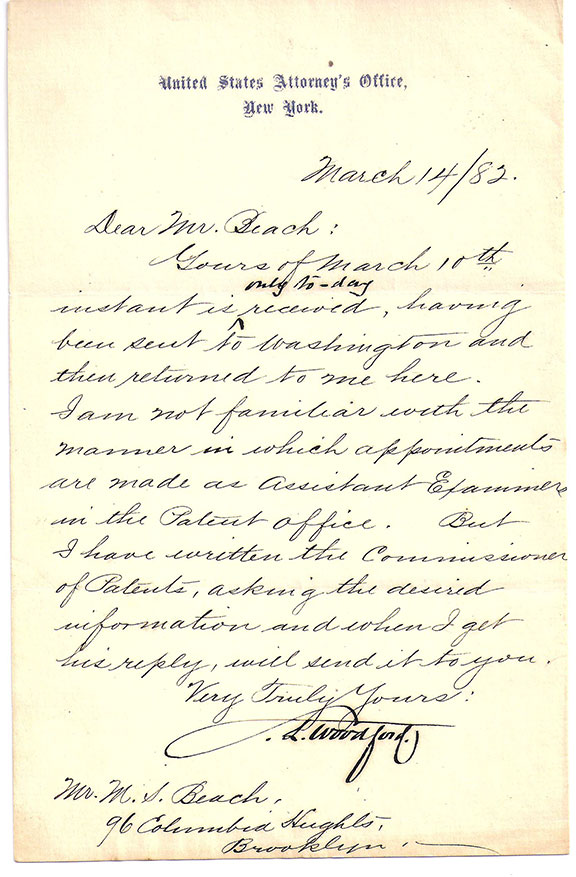 United States Attorney's Office,
New York.
March 14/82.
Dear Mr. Beach:
Yours of March 10th
only to-day
instant is ^ received, having
been sent to Washington and
then returned to me here.
I am not familiar with the
manner in which appointments
are made as Assistant Examiners
in the Patent Office. But
I have written the Commissioner
of Patents, asking the desired
information and when I get
his reply, will send it to you.
Very Truly Yours:
S. L. Woodford.
Mr. M. S. Beach,
96 Columbia Hights,
Brooklyn.